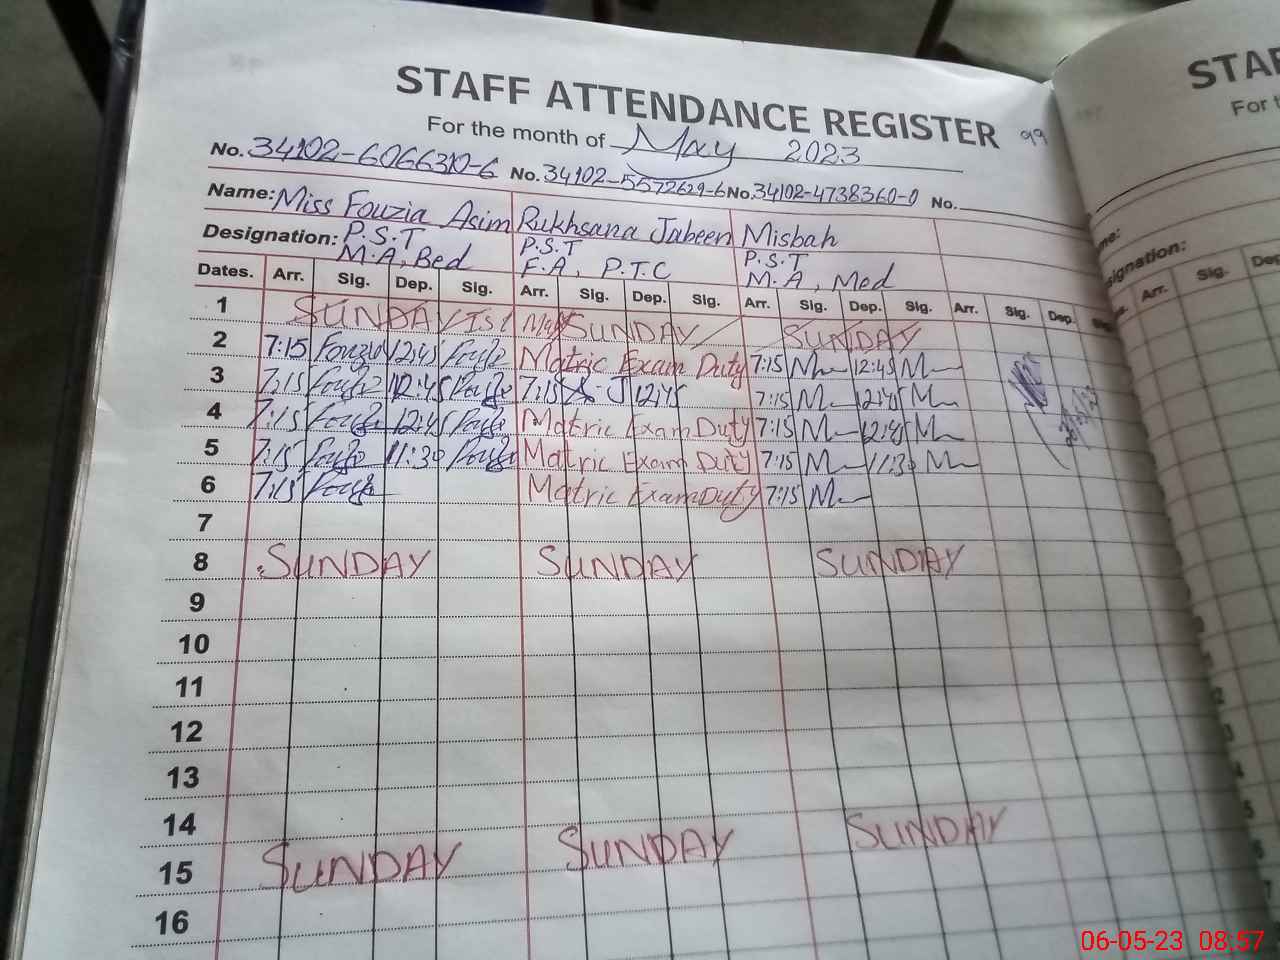 STAFF ATTENDANCE REGISTER 99
For the month of May 2023
No. 34102-6066310-6 No. 34102-5572629-6 No. 34102-4738360-0 No.
Name: Miss Fouzia Asim Rukhsana Jabeen Misbah
Designation: P.S.T P.S.T P.S.T
M.A, Bed F.A, P.T.C M.A, Med
Dates. Arr. Sig. Dep. Sig. Arr. Sig. Dep. Sig. Arr. Sig. Dep. Sig. Arr. Sig. Dep. Sig.
1 SUNDAY 1st May SUNDAY SUNDAY
2 7:15 Fouzia 12:45 Matric Exam Duty 7:15 12:45
3 7:15 12:45 7:15 12:45 7:15 12:45
4 7:15 12:45 Matric Exam Duty 7:15 12:45
5 7:15 11:30 Matric Exam Duty 7:15 11:30
6 7:15 Matric Exam Duty 7:15
7
8 SUNDAY SUNDAY SUNDAY
9
10
11
12
13
14
15 SUNDAY SUNDAY SUNDAY
16
STAF
For t
me:
signation:
Arr. Sig. Dep
06-05-23 08:57